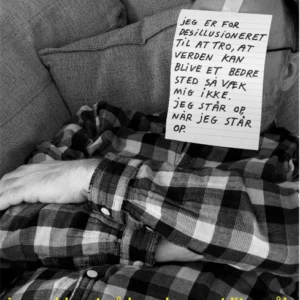 JEG ER FOR
DESILLUSIONERET
TIL AT TRO, AT
VERDEN KAN
BLIVE ET BEDRE
STED SÅ VÆK
MIG IKKE.
JEG STÅR OP,
NÅR JEG STÅR
OP.